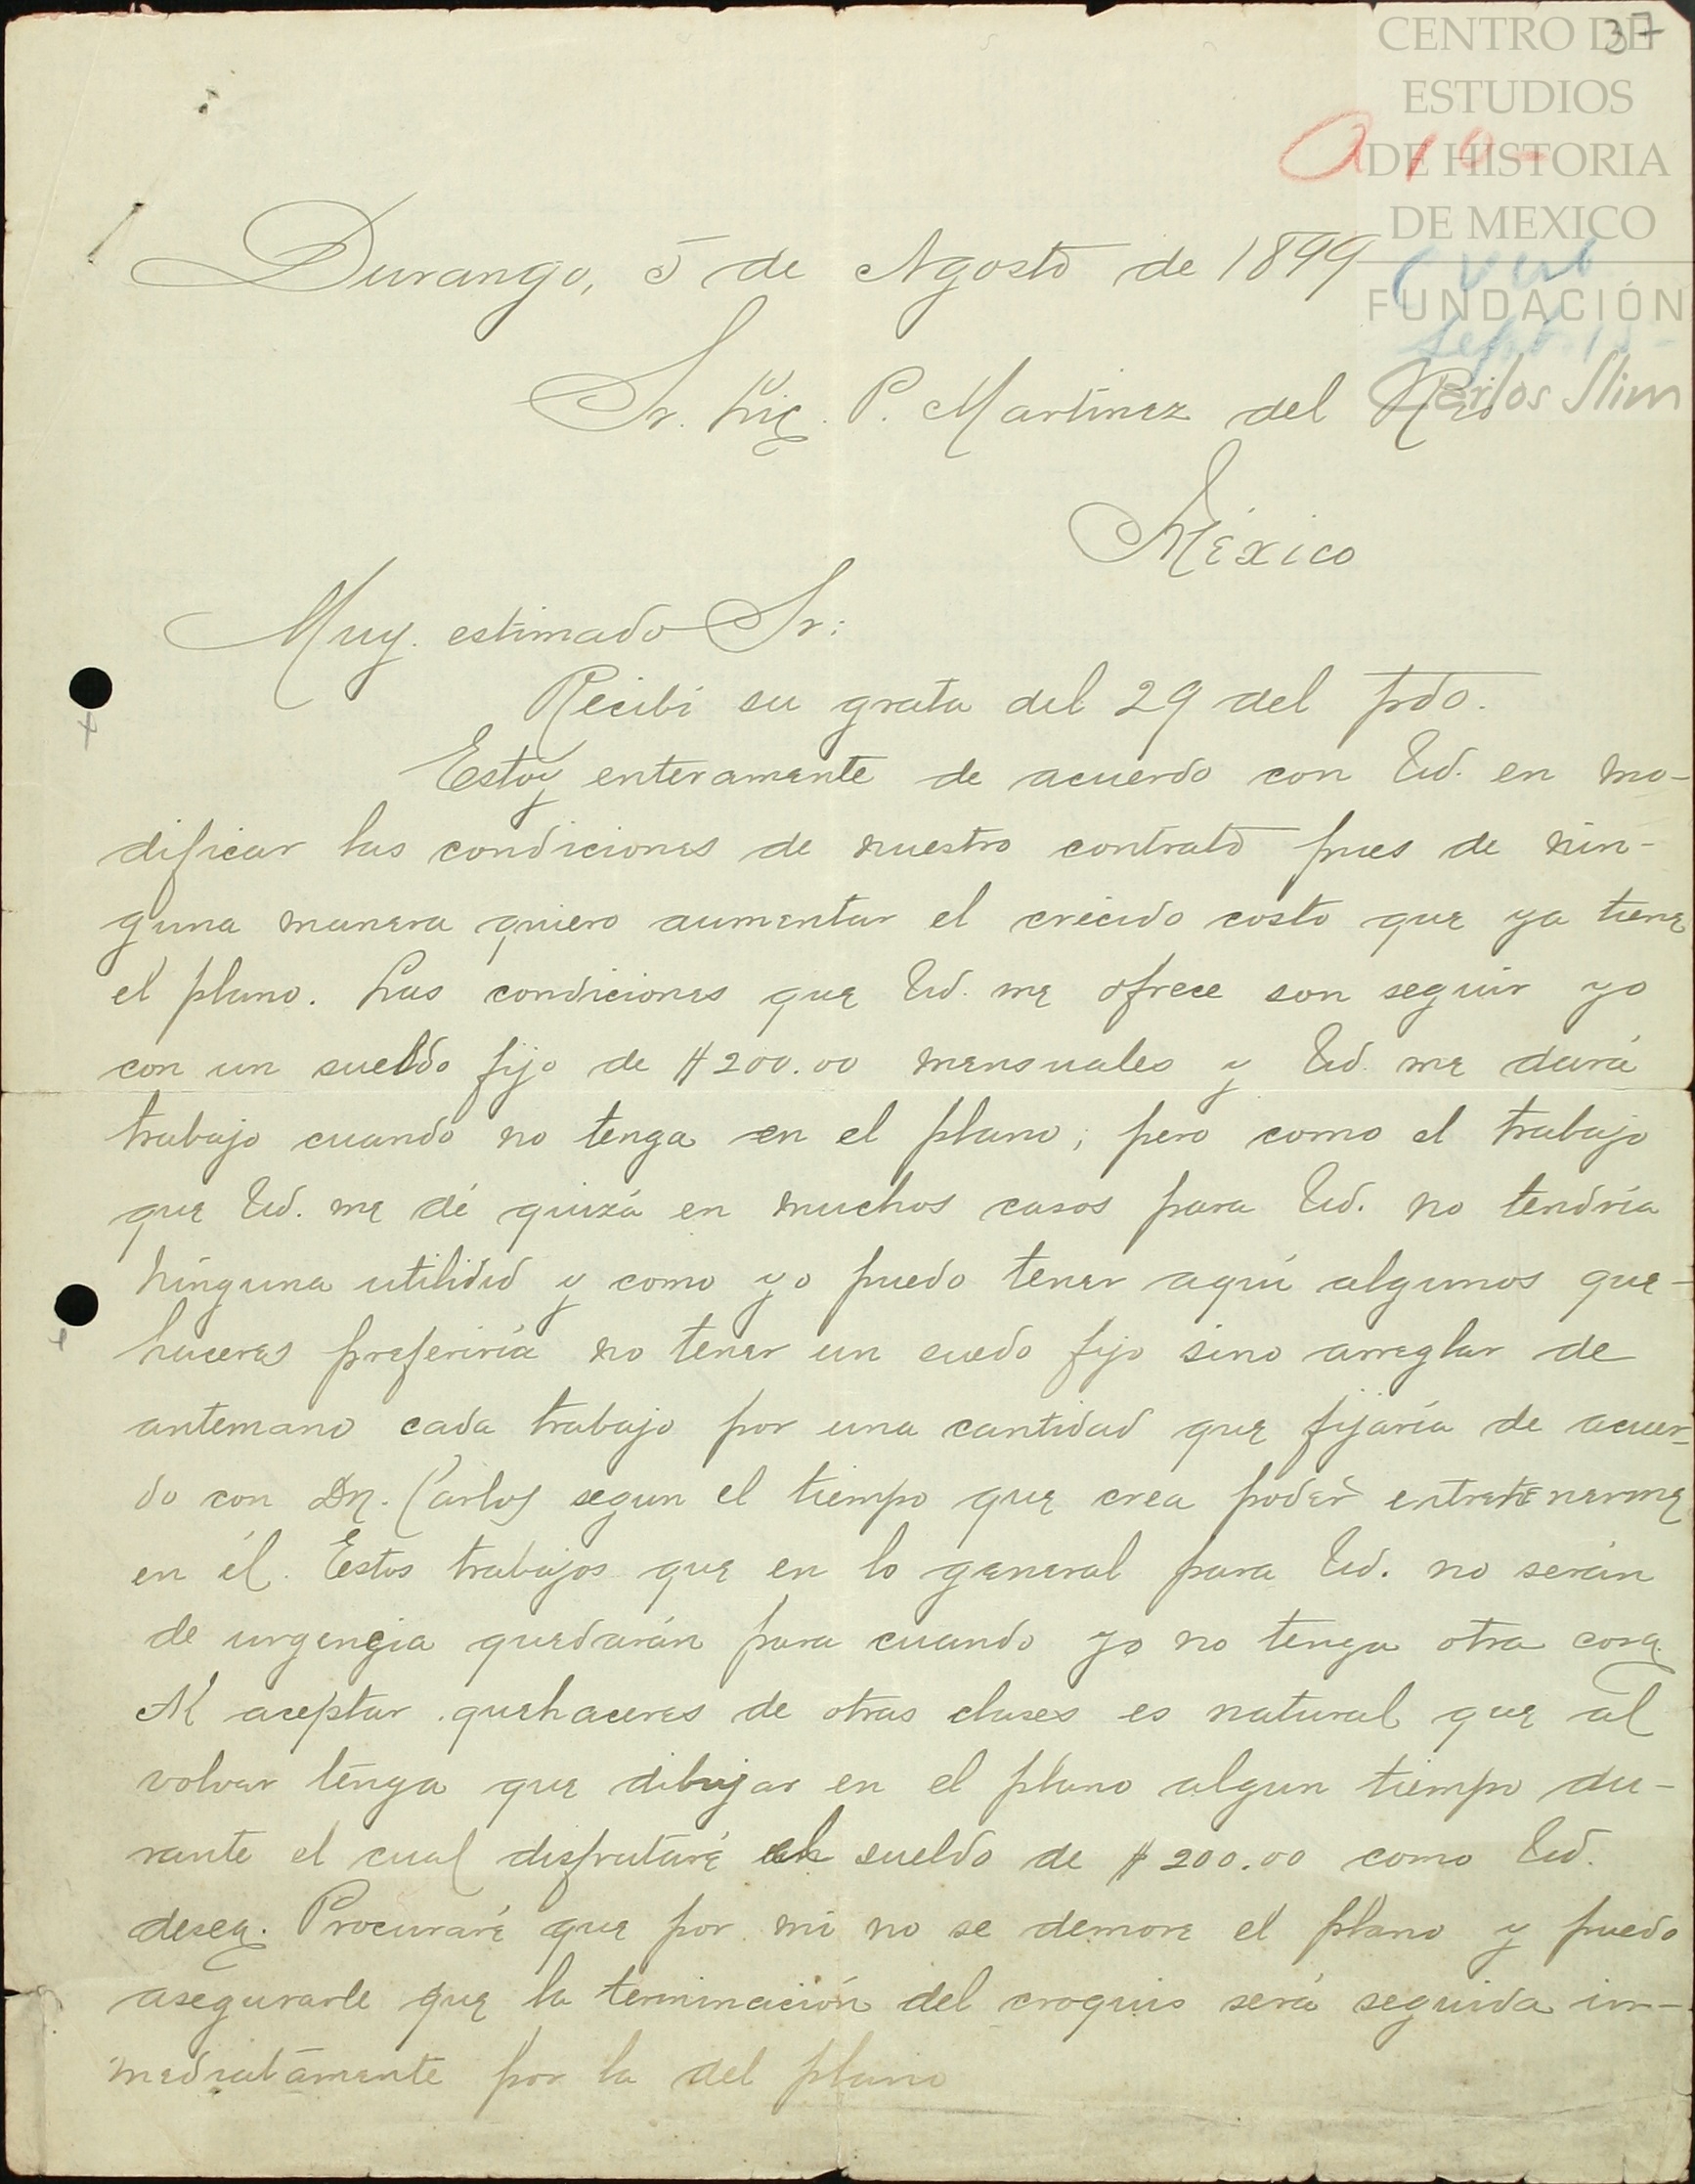 37
CENTRO DE
ESTUDIOS
DE HISTORIA
DE MEXICO
FUNDACIÓN
Carlos Slim
Durango, 5 de Agosto de 1899
Sr. Lic. P. Martinez del Rio
México
Muy. estimado Sr:
Recibí su grata del 29 del ppdo.
Estoy enteramente de acuerdo con Ud. en mo-
dificar las condiciones de nuestro contrato pues de nin-
guna manera quiero aumentar el crecido costo que ya tiene
el plano. Las condiciones que Ud. me ofrece son seguir yo
con un sueldo fijo de $200.00 mensuales y Ud. me dará
trabajo cuando no tenga en el plano; pero como el trabajo
que Ud. me dé quizá en muchos casos para Ud. no tendría
ninguna utilidad y como yo puedo tener aquí algunos que-
haceres preferiría no tener un suedo fijo sino arreglar de
antemano cada trabajo por una cantidad que fijaría de acuer-
do con Dn. Carlos segun el tiempo que crea poder entretenerme
en él. Estos trabajos que en lo general para Ud. no serán
de urgencia quedarán para cuando yo no tenga otra cosa
Al aceptar quehaceres de otras clases es natural que al
volver tenga que dibujar en el plano algun tiempo du-
rante el cual disfrutaré el sueldo de $200.00 como Ud.
desea. Procuraré que por mi no se demore el plano y puedo
asegurarle que la terminación del croquis será seguida in-
mediatamente por la del plano